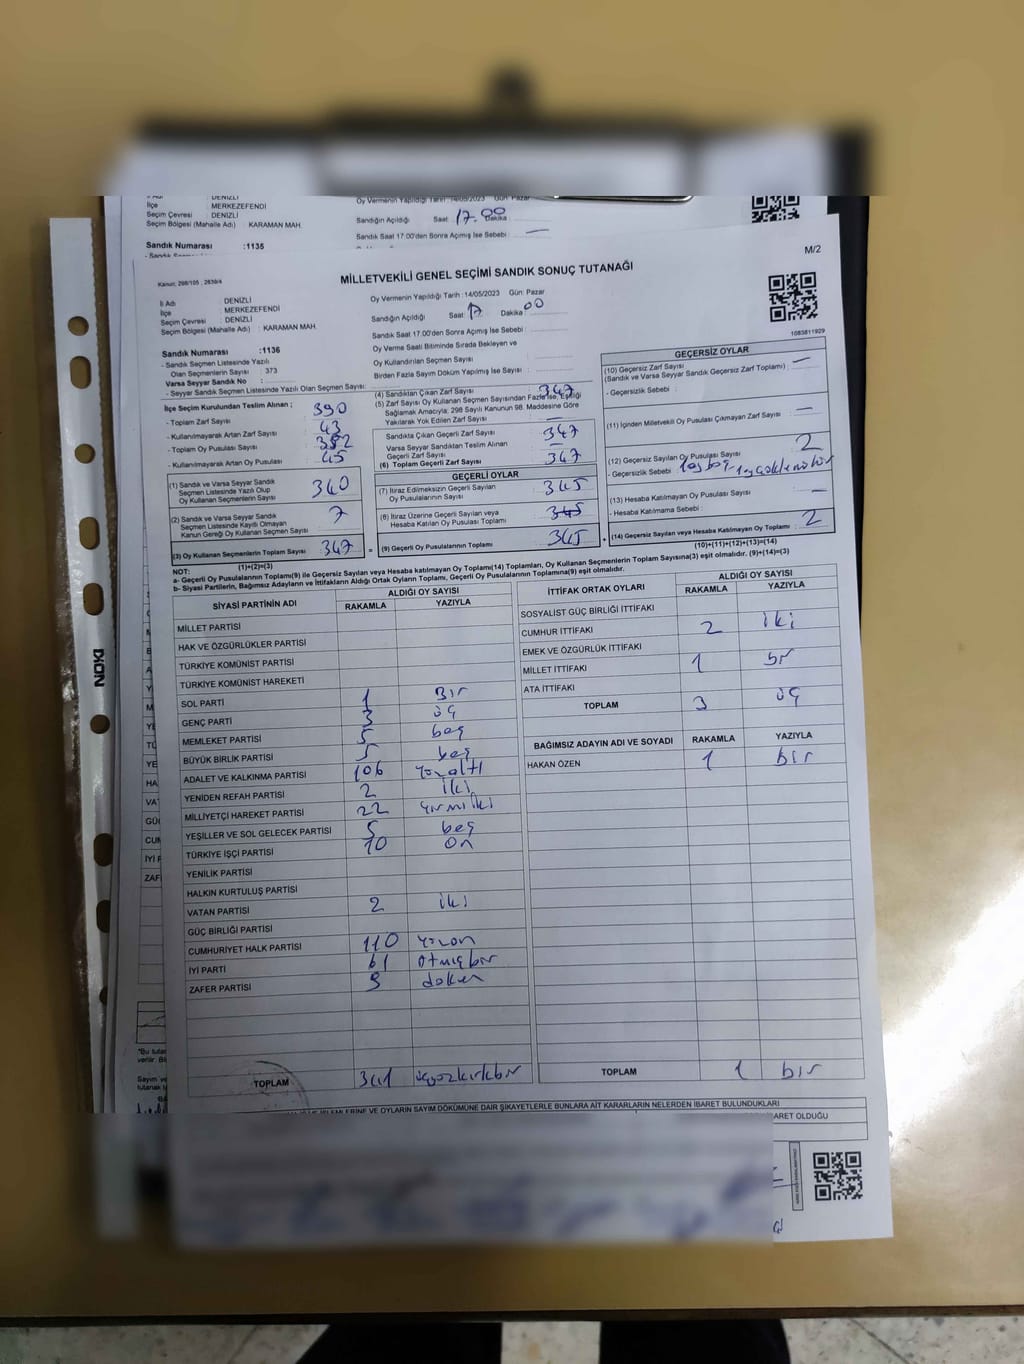 DENİZLİ
İlçe MERKEZEFENDİ
Seçim Çevresi DENİZLİ
Seçim Bölgesi (Mahalle Adı) : KARAMAN MAH.
Sandık Numarası :1135
Oy Vermenin Yapıldığı Tarih :14/05/2023 Gün: Pazar
Sandığın Açıldığı Saat 17.00 Dakika
Sandık Saat 17:00'den Sonra Açılmış İse Sebebi : —
M/2
MİLLETVEKİLİ GENEL SEÇİMİ SANDIK SONUÇ TUTANAĞI
İl Adı : DENİZLİ
İlçe : MERKEZEFENDİ
Seçim Çevresi : DENİZLİ
Seçim Bölgesi (Mahalle Adı) : KARAMAN MAH.
Oy Vermenin Yapıldığı Tarih : 14/05/2023 Gün: Pazar
Sandığın Açıldığı Saat 17 Dakika 00
Sandık Saat 17.00'den Sonra Açılmış İse Sebebi :
Oy Verme Saati Bitiminde Sırada Bekleyen ve
Oy Kullandırılan Seçmen Sayısı
Birden Fazla Sayım Döküm Yapılmış İse Sayısı :
1083811929
Sandık Numarası :1136
- Sandık Seçmen Listesinde Yazılı
Olan Seçmenlerin Sayısı : 373
Varsa Seyyar Sandık No :
- Seyyar Sandık Seçmen Listesinde Yazılı Olan Seçmen Sayısı:
İlçe Seçim Kurulundan Teslim Alınan ;
- Toplam Zarf Sayısı 390
- Kullanılmayarak Artan Zarf Sayısı 43
- Toplam Oy Pusulası Sayısı
- Kullanılmayarak Artan Oy Pusulası 45
(1) Sandık ve Varsa Seyyar Sandık
Seçmen Listesinde Yazılı Olup
Oy Kullanan Seçmenlerin Sayısı 340
(2) Sandık ve Varsa Seyyar Sandık
Seçmen Listesinde Kayıtlı Olmayan
Kanun Gereği Oy Kullanan Seçmen Sayısı 7
(3) Oy Kullanan Seçmenlerin Toplam Sayısı 347
(1)+(2)=(3)
(4) Sandıktan Çıkan Zarf Sayısı 347
(5) Zarf Sayısı Oy Kullanan Seçmen Sayısından Fazla İse, Eşitliği
Sağlamak Amacıyla; 298 Sayılı Kanunun 98. Maddesine Göre
Yakılarak Yok Edilen Zarf Sayısı —
Sandıkta Çıkan Geçerli Zarf Sayısı 347
Varsa Seyyar Sandıktan Teslim Alınan
Geçerli Zarf Sayısı —
(6) Toplam Geçerli Zarf Sayısı 347
GEÇERLİ OYLAR
(7) İtiraz Edilmeksizin Geçerli Sayılan
Oy Pusulalarının Sayısı 345
(8) İtiraz Üzerine Geçerli Sayılan veya
Hesaba Katılan Oy Pusulası Toplamı 345
(9) Geçerli Oy Pusulalarının Toplamı 345
GEÇERSİZ OYLAR
(10) Geçersiz Zarf Sayısı —
(Sandık ve Varsa Seyyar Sandık Geçersiz Zarf Toplamı) :
- Geçersizlik Sebebi :
(11) İçinden Milletvekili Oy Pusulası Çıkmayan Zarf Sayısı —
(12) Geçersiz Sayılan Oy Pusulası Sayısı 2
- Geçersizlik Sebebi
(13) Hesaba Katılmayan Oy Pusulası Sayısı —
- Hesaba Katılmama Sebebi :
(14) Geçersiz Sayılan veya Hesaba Katılmayan Oy Toplamı : 2
(10)+(11)+(12)+(13)=(14)
NOT:
a- Geçerli Oy Pusulalarının Toplamı(9) ile Geçersiz Sayılan veya Hesaba katılmayan Oy Toplamı(14) Toplamları, Oy Kullanan Seçmenlerin Toplam Sayısına(3) eşit olmalıdır. (9)+(14)=(3)
b- Siyasi Partilerin, Bağımsız Adayların ve İttifakların Aldığı Ortak Oyların Toplamı, Geçerli Oy Pusulalarının Toplamına(9) eşit olmalıdır.
SİYASİ PARTİNİN ADI ALDIĞI OY SAYISI
RAKAMLA YAZIYLA
MİLLET PARTİSİ
HAK VE ÖZGÜRLÜKLER PARTİSİ
TÜRKİYE KOMÜNİST PARTİSİ
TÜRKİYE KOMÜNİST HAREKETİ
SOL PARTİ 1 Bir
GENÇ PARTİ 3 üç
MEMLEKET PARTİSİ 5 beş
BÜYÜK BİRLİK PARTİSİ 5 beş
ADALET VE KALKINMA PARTİSİ 106 yüzaltı
YENİDEN REFAH PARTİSİ 2 iki
MİLLİYETÇİ HAREKET PARTİSİ 22 yirmiiki
YEŞİLLER VE SOL GELECEK PARTİSİ 5 beş
TÜRKİYE İŞÇİ PARTİSİ 10 on
YENİLİK PARTİSİ
HALKIN KURTULUŞ PARTİSİ
VATAN PARTİSİ 2 iki
GÜÇ BİRLİĞİ PARTİSİ
CUMHURİYET HALK PARTİSİ 110 yüzon
İYİ PARTİ 61 atmışbir
ZAFER PARTİSİ 9 dokuz
TOPLAM 341 üçyüzkırkbir
İTTİFAK ORTAK OYLARI ALDIĞI OY SAYISI
RAKAMLA YAZIYLA
SOSYALİST GÜÇ BİRLİĞİ İTTİFAKI
CUMHUR İTTİFAKI 2 iki
EMEK VE ÖZGÜRLÜK İTTİFAKI
MİLLET İTTİFAKI 1 bir
ATA İTTİFAKI
TOPLAM 3 üç
BAĞIMSIZ ADAYIN ADI VE SOYADI RAKAMLA YAZIYLA
HAKAN ÖZEN 1 bir
TOPLAM 1 bir
OYLARIN SAYIM DÖKÜMÜNE DAİR ŞİKAYETLERLE BUNLARA AİT KARARLARIN NELERDEN İBARET BULUNDUKLARI
NOKI